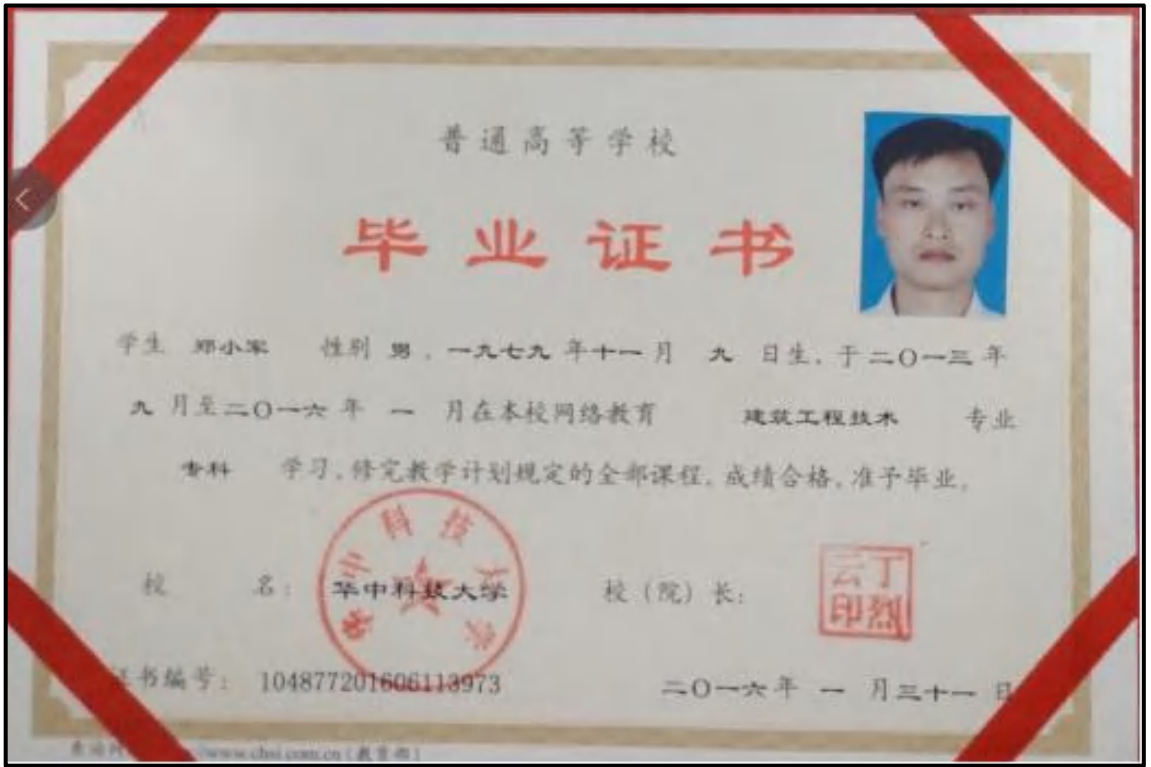 普通高等学校
毕业证书
学生 郑小军 性别 男，一九七九 年十一月 九 日生，于二〇一三年
九 月至二〇一六 年 一 月在本校网络教育 建筑工程技术 专业
专科 学习，修完教学计划规定的全部课程，成绩合格，准予毕业。
校 名： 华中科技大学 校（院）长： 丁烈云印
华中科技大学
证书编号： 104877201606113973 二〇一六年 一 月三十一 日
www.chsi.com.cn（教育部）